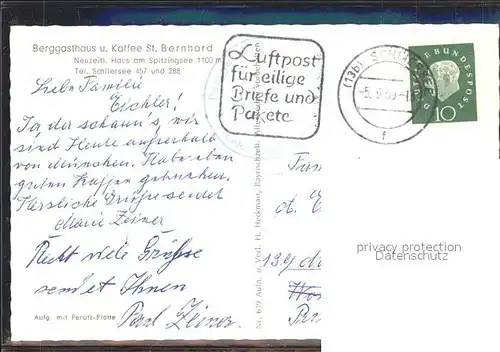 Berggasthaus u. Kaffee St. Bernhard
Neuzeitl. Haus am Spitzingsee 1100 m
Tel. Schliersee 457 und 288
Liebe Familie
Eichler!
Ja, da schaun's, wir
sind Heute außerhalb
von München. Habe eben
guten Kaffee getrunken.
Herzliche Grüße sendet
Marie Zeiner
Recht viele Grüße
sendet Ihnen
Paul Zeiner
Aufg. mit Perutz-Platte
Luftpost
für eilige
Briefe und
Pakete
(13b) SCHLIERSEE
-5.9.59-1
f
DEUTSCHE BUNDESPOST
10
Nr. 679 Aufn. u. Verl. H. Heckmair, Bayrischzell. Alle Rechte vorbehalten
Fam
13g
privacy protection
Datenschutz